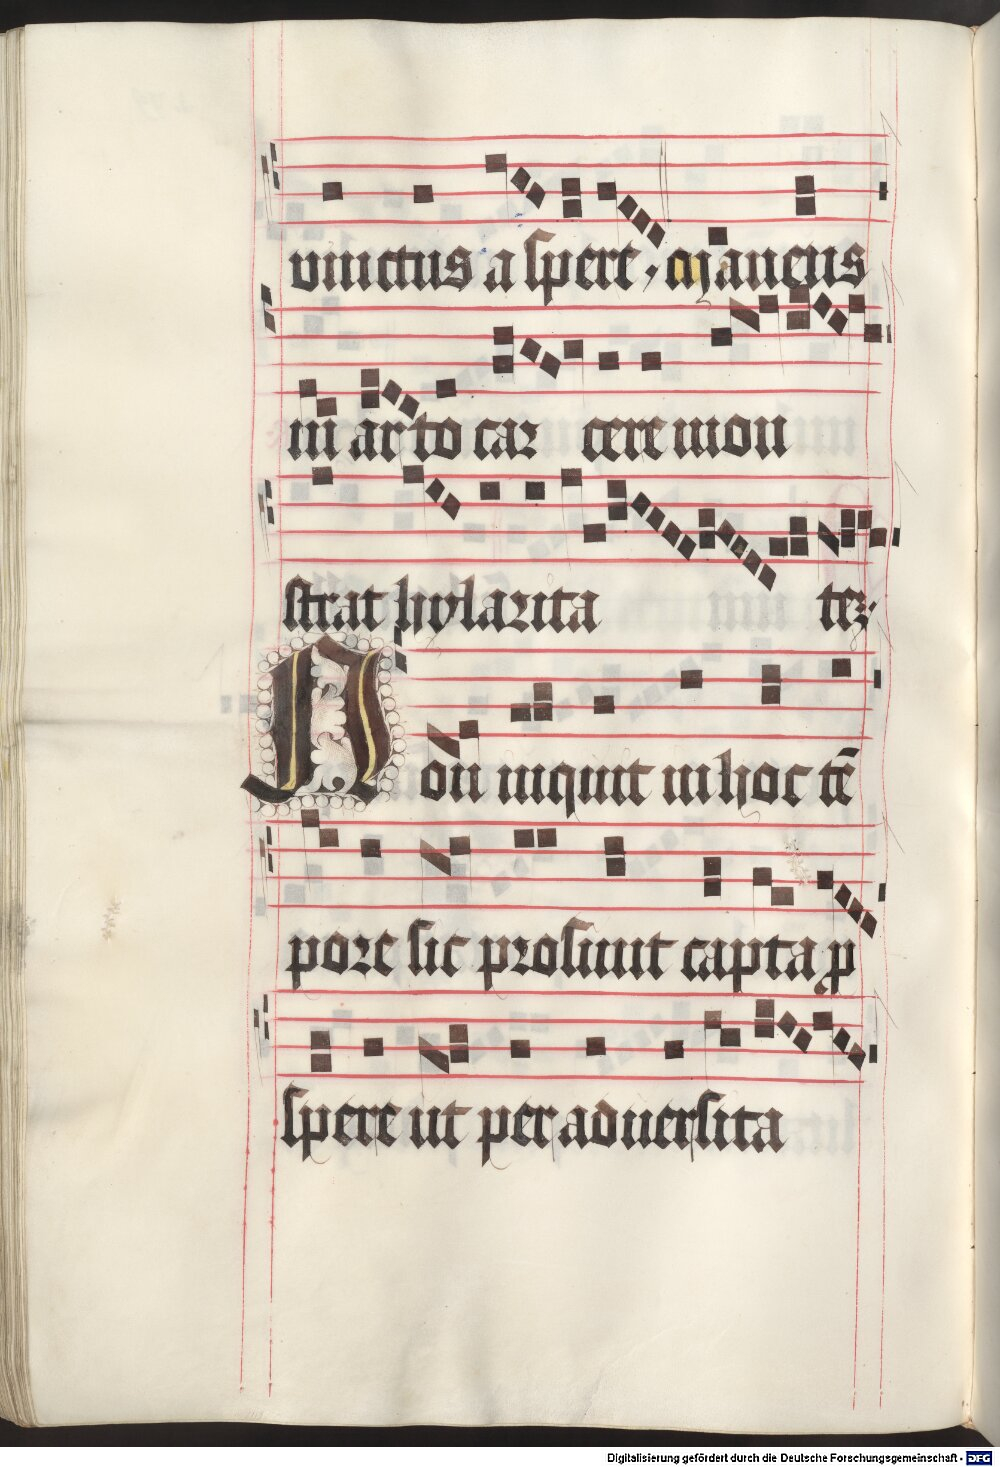 vinctus a spere, manens
in arcto car cere mon
strat hylarita tez
Non inquit in hoc tē
pore sic prosiunt capta p
spere ut per aduersita
Digitalisierung gefördert durch die Deutsche Forschungsgemeinschaft - DFG